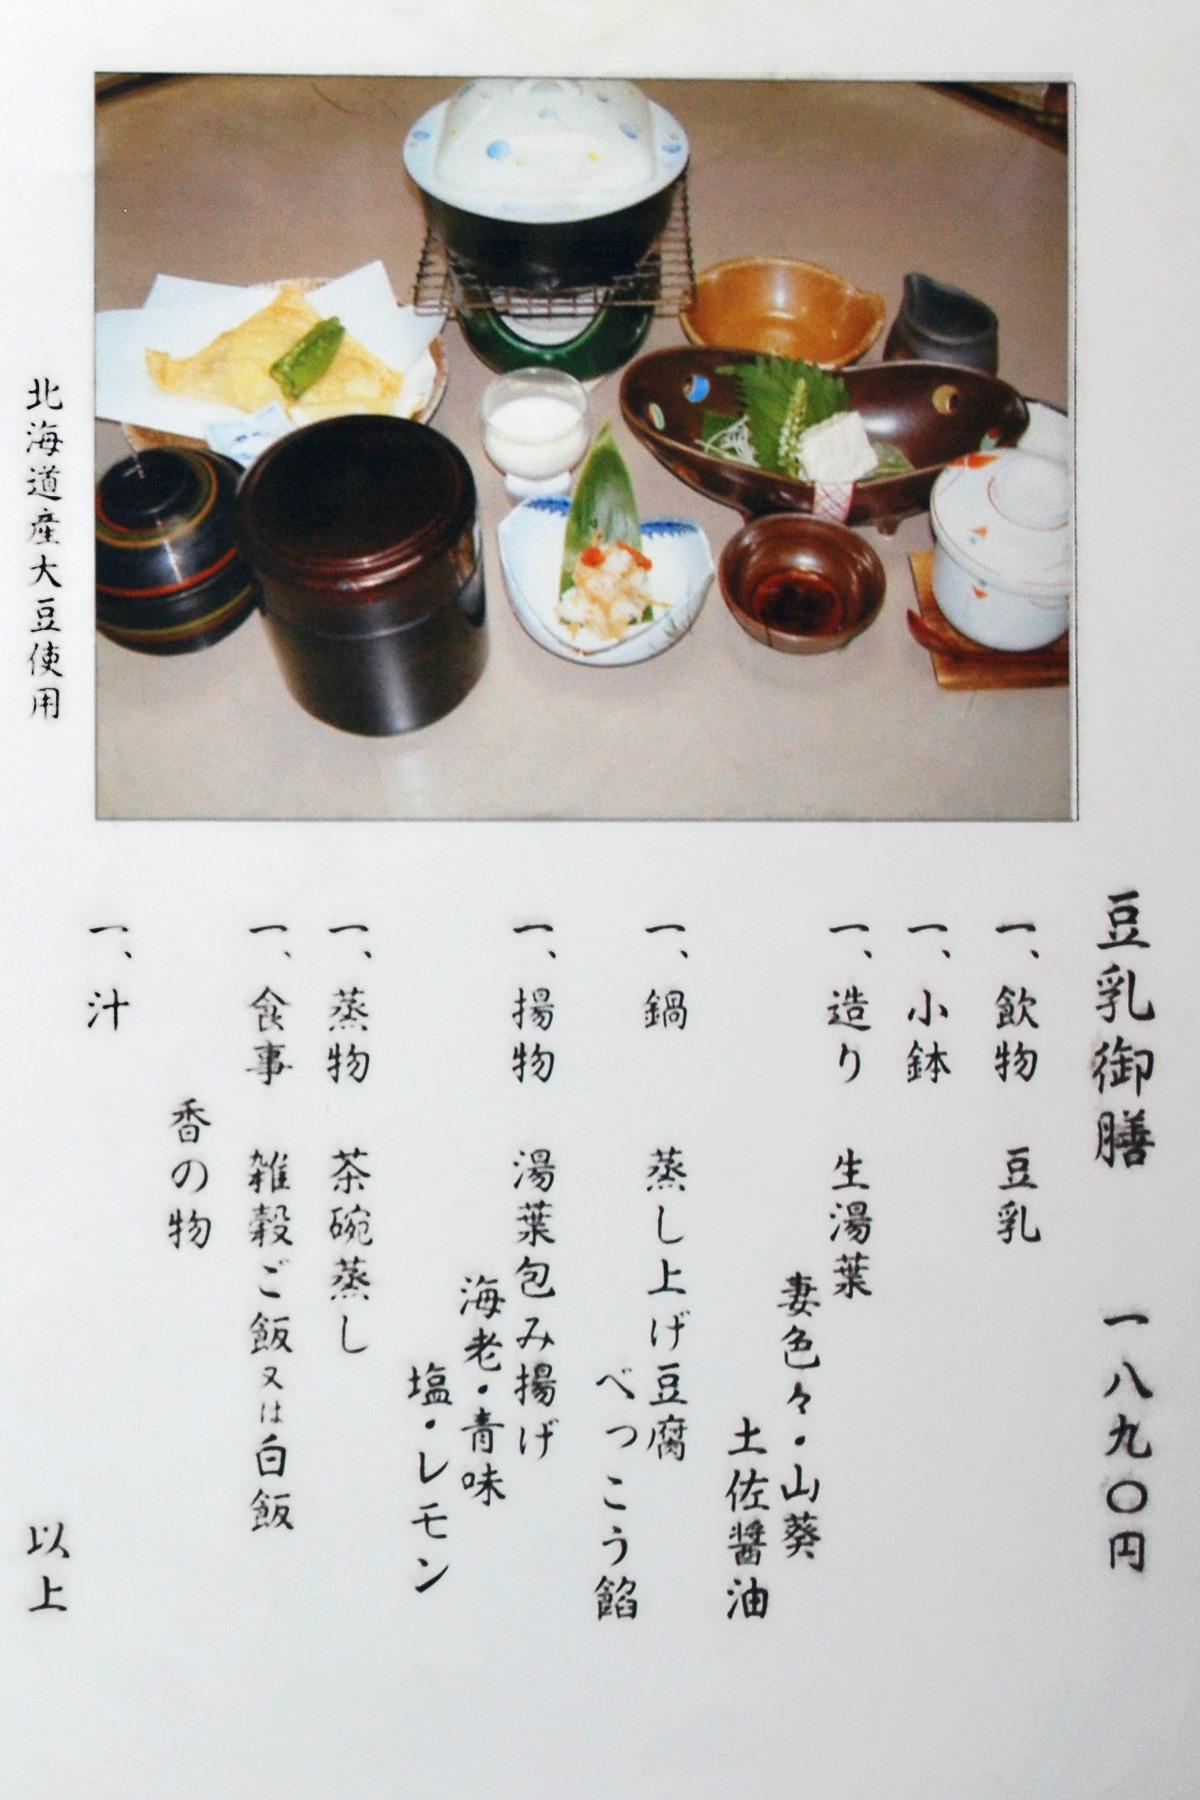 豆乳御膳 一八九〇円
一、飲物 豆乳
一、小鉢
一、造り 生湯葉
妻色々・山葵
土佐醤油
一、鍋 蒸し上げ豆腐
べっこう餡
一、揚物 湯葉包み揚げ
海老・青味
塩・レモン
一、蒸物 茶碗蒸し
一、食事 雑穀ご飯又は白飯
香の物
一、汁
以上
北海道産大豆使用